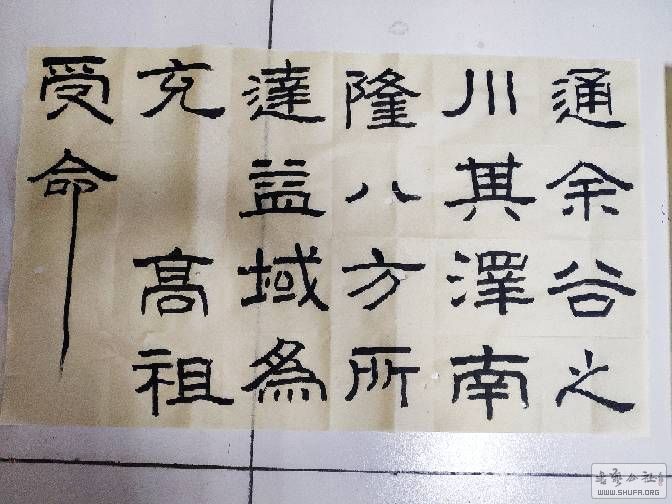 通余谷之
川其澤南
隆八方所
達益域為
充 高祖
受命
WWW.SHUFA.ORG